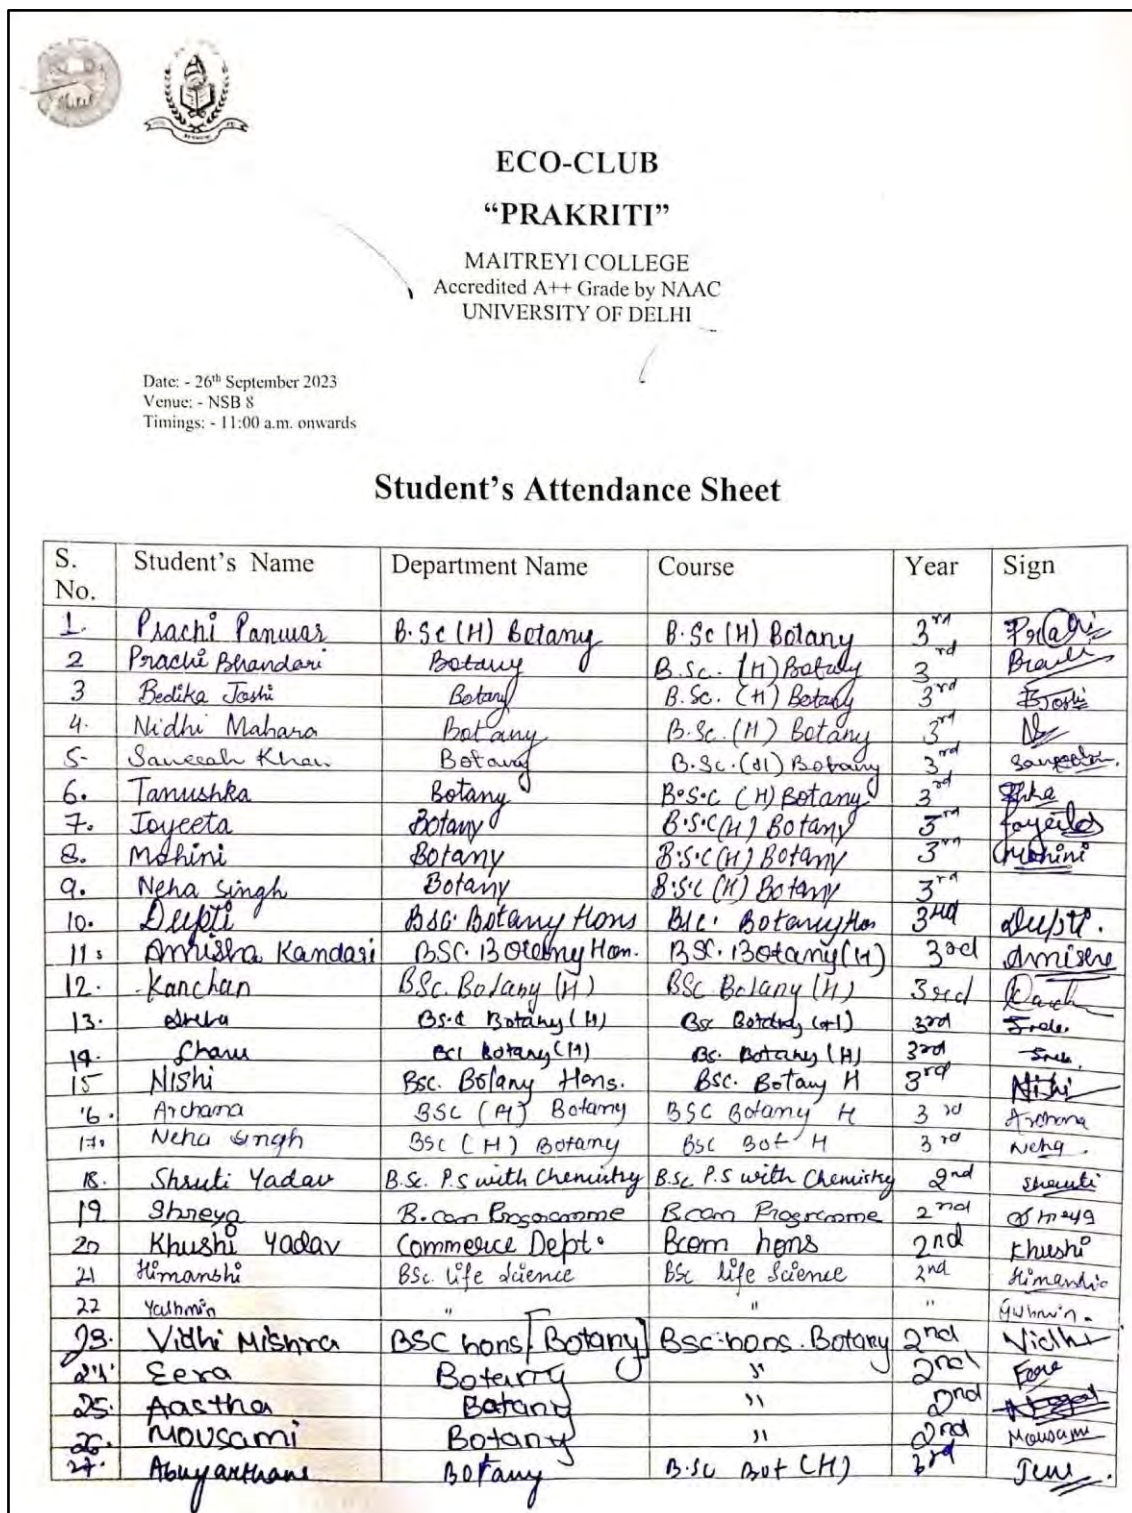 ECO-CLUB
“PRAKRITI”
MAITREYI COLLEGE
Accredited A++ Grade by NAAC
UNIVERSITY OF DELHI
Date: - 26th September 2023
Venue: - NSB 8
Timings: - 11:00 a.m. onwards
Student's Attendance Sheet
S. No. Student's Name Department Name Course Year Sign
1. Prachi Panwar B.Sc (H) Botany B.Sc (H) Botany 3rd Prachi
2 Prachi Bhandari Botany B.Sc. (H) Botany 3rd
3 Bedika Joshi Botany B.Sc. (H) Botany 3rd BJoshi
4. Nidhi Mahara Botany B.Sc. (H) Botany 3rd
5- Saneeah Khan Botany B.Sc. (H) Botany 3rd
6. Tanushka Botany B.S.C (H) Botany 3rd
7. Joyeeta Botany B.S.C (H) Botany 3rd Joyeeta
8. Mohini Botany B.S.C (H) Botany 3rd Mohini
9. Neha Singh Botany B.S.C (H) Botany 3rd
10. Deepti BSC. Botany Hons BSc. Botany Hon 3rd Deepti.
11. Amisha Kandari BSC. Botany Hon. BSC. Botany (H) 3rd
12. Kanchan BSc. Botany (H) BSc Botany (H) 3rd
13. Botany (H) Bsc Botany (H) 3rd
14. Charu Botany (H) Bs. Botany (H) 3rd
15 Nishi Bsc. Botany Hons. Bsc. Botany H 3rd Nishi
16. Archana BSC (H) Botany BSC Botany H 3rd Archana
17. Neha Singh BSC (H) Botany BSC Bot H 3rd Neha.
18. Shruti Yadav B.Sc. P.S with Chemistry B.Sc P.S with Chemistry 2nd Shruti
19 Shreya B.com Programme B.com Programme 2nd Shreya
20 Khushi Yadav Commerce Dept. Bcom hons 2nd Khushi
21 Himanshi BSc. life Science BSc life Science 2nd Himanshi
22 Yashmin " " " Yashmin.
23. Vidhi Mishra BSC hons [Botany] Bsc.hons. Botany 2nd Vidhi
24. Eera Botany " 2nd
25. Aastha Botany " 2nd
26. Mousami Botany " 2nd Mousami
27. Botany B.Sc Bot (H) 3rd